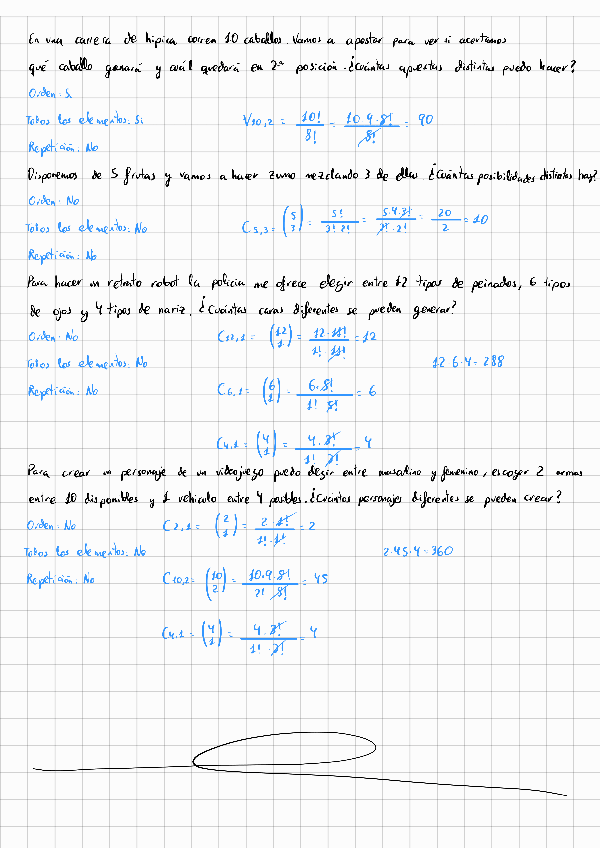 En una carrera de hípica corren 10 caballos. Vamos a apostar para ver si acertamos
qué caballo ganará y cuál quedará en 2ª posición. ¿Cuántas apuestas distintas puedo hacer?
Orden: Si
Todos los elementos: Si V10,2 = 10!/8! = 10·9·8!/8! = 90
Repetición: No
Disponemos de 5 frutas y vamos a hacer zumo mezclando 3 de ellas. ¿Cuántas posibilidades distintas hay?
Orden: No
Todos los elementos: No C5,3 = (5 3) = 5!/3!·2! = 5·4·3!/3!·2! = 20/2 = 10
Repetición: No
Para hacer un retrato robot la policía me ofrece elegir entre 12 tipos de peinados, 6 tipos
de ojos y 4 tipos de nariz. ¿Cuántas caras diferentes se pueden generar?
Orden: No C12,1 = (12 1) = 12·11!/1!·11! = 12
Todos los elementos: No 12·6·4 = 288
Repetición: No C6,1 = (6 1) = 6·5!/1!·5! = 6
C4,1 = (4 1) = 4·3!/1!·3! = 4
Para crear un personaje de un videojuego puedo elegir entre masculino y femenino, escoger 2 armas
entre 10 disponibles y 1 vehículo entre 4 posibles. ¿Cuántos personajes diferentes se pueden crear?
Orden: No C2,1 = (2 1) = 2·1!/1!·1! = 2
Todos los elementos: No 2·45·4 = 360
Repetición: No C10,2 = (10 2) = 10·9·8!/2!·8! = 45
C4,1 = (4 1) = 4·3!/1!·3! = 4